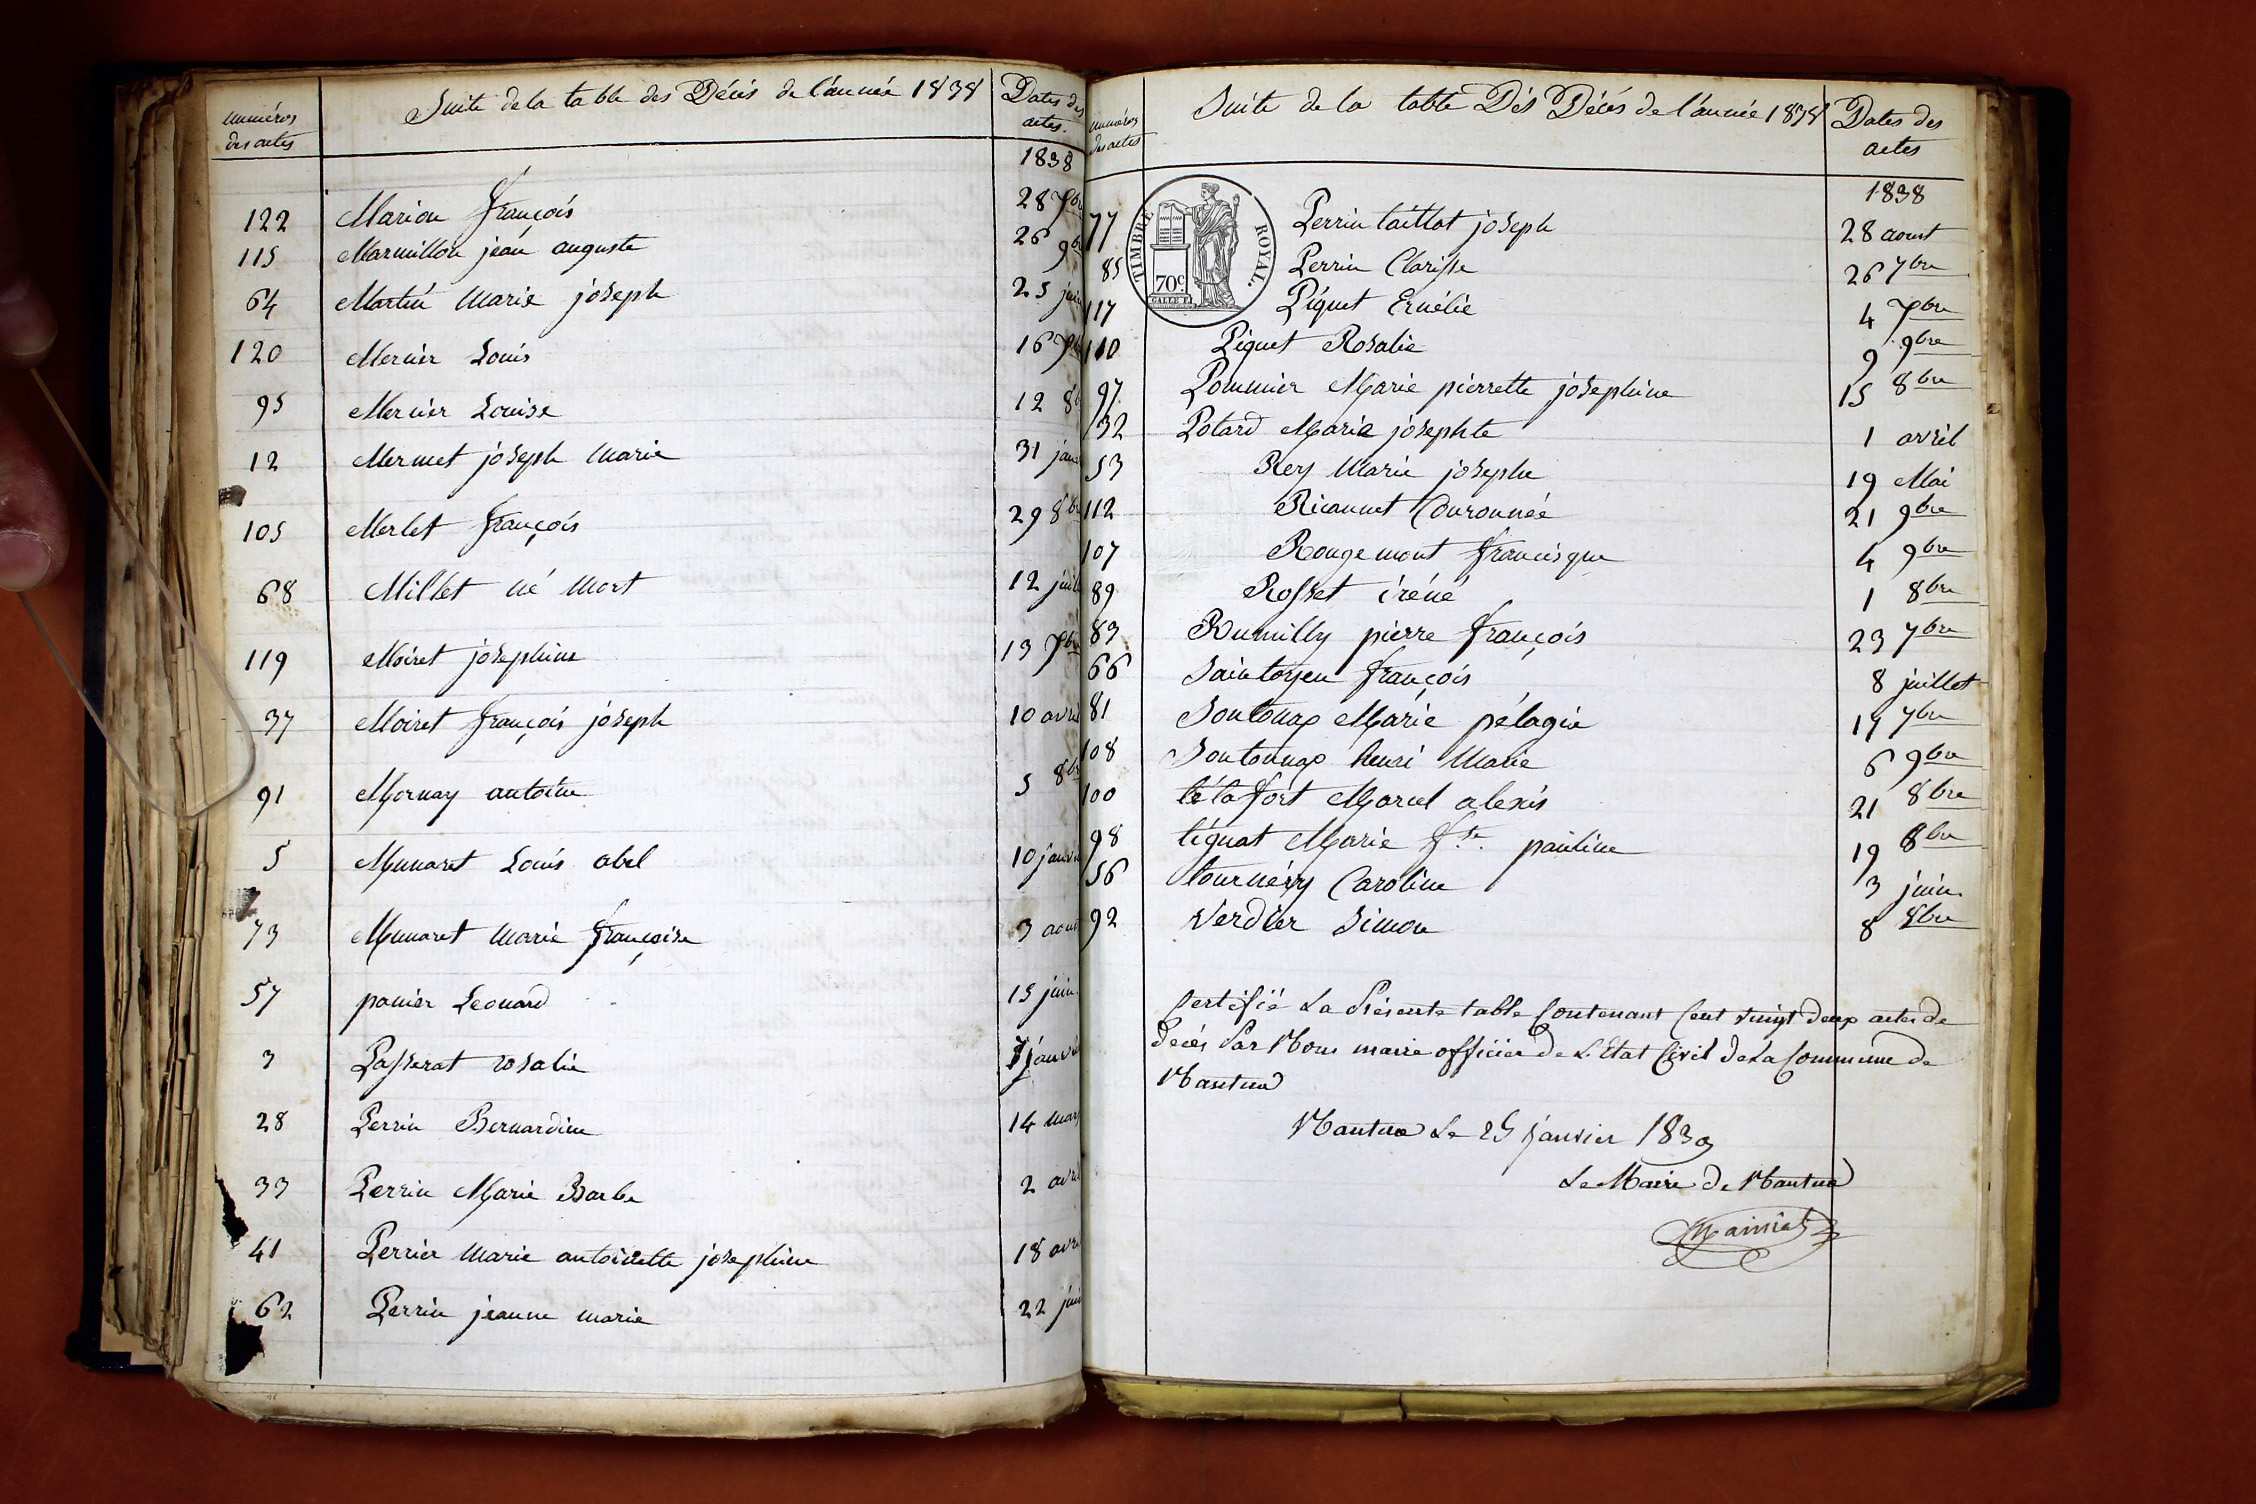 numéros
des actes
Suite de la table des Décès de l'année 1838
Dates des
actes.
1838
122 Marion françois 28 Xbre
115 Marmillon jean auguste 26 9bre
64 Martin Marie joseph 25 juin
120 Mercier Louis 16 Xbre
95 Mercier Louise 12 8b
12 Mermet joseph Marie 31 janv
105 Merlet françois 29 8bre
68 Millet né Mort 12 juill
119 Moiret josephine 13 Xbre
37 Moiret françois joseph 10 avril
91 Mornay antoine 5 8bre
5 Munaret Louis abel 10 janvie
73 Munaret Marie françoise 3 aout
57 panier Leonard 15 juin
3 Passerat rosalie 7 janvie
28 Perrin Bernardine 14 mars
33 Perrin Marie Barbe 2 avril
41 Perrier Marie antoinette josephine 18 avri
62 Perrin jeanne marie 22 juin
numéros
des actes
Suite de la table Dés Décés de l'année 1838
Dates des
actes
1838
TIMBRE ROYAL.
70c.
77 Perrin taillat joseph 28 aoust
85 Perrin Clarisse 26 7bre
117 Piquet Ernélie 4 Xbre
110 Piquet Rosalie 9 9bre
97 Pommier Marie pierrette josephine 15 8bre
32 Potard Marie josephte 1 avril
53 Rey Marie josephe 19 Mai
112 Ricannet Couronnée 21 9bre
107 Rougemont francisque 4 9bre
89 Rosset iréné 1 8bre
83 Rumilly pierre françois 23 7bre
66 Saintoyen françois 8 juillet
81 Sontonax Marie pélagie 17 7bre
108 Sontonnax henri Marie 6 9bre
100 tétafort Marcel alexis 21 8bre
98 tignat Marie fse. pauline 19 8bre
56 tournéry Caroline 3 juin
92 Verdier Simon 8 8bre
Certifié La Présente table Contenant Cent vingt deux actes de
décés Par Nous maire officier de L'Etat Civil de La Commune de
Nantua
Nantua Le 25 janvier 1839
Le Maire de Nantua